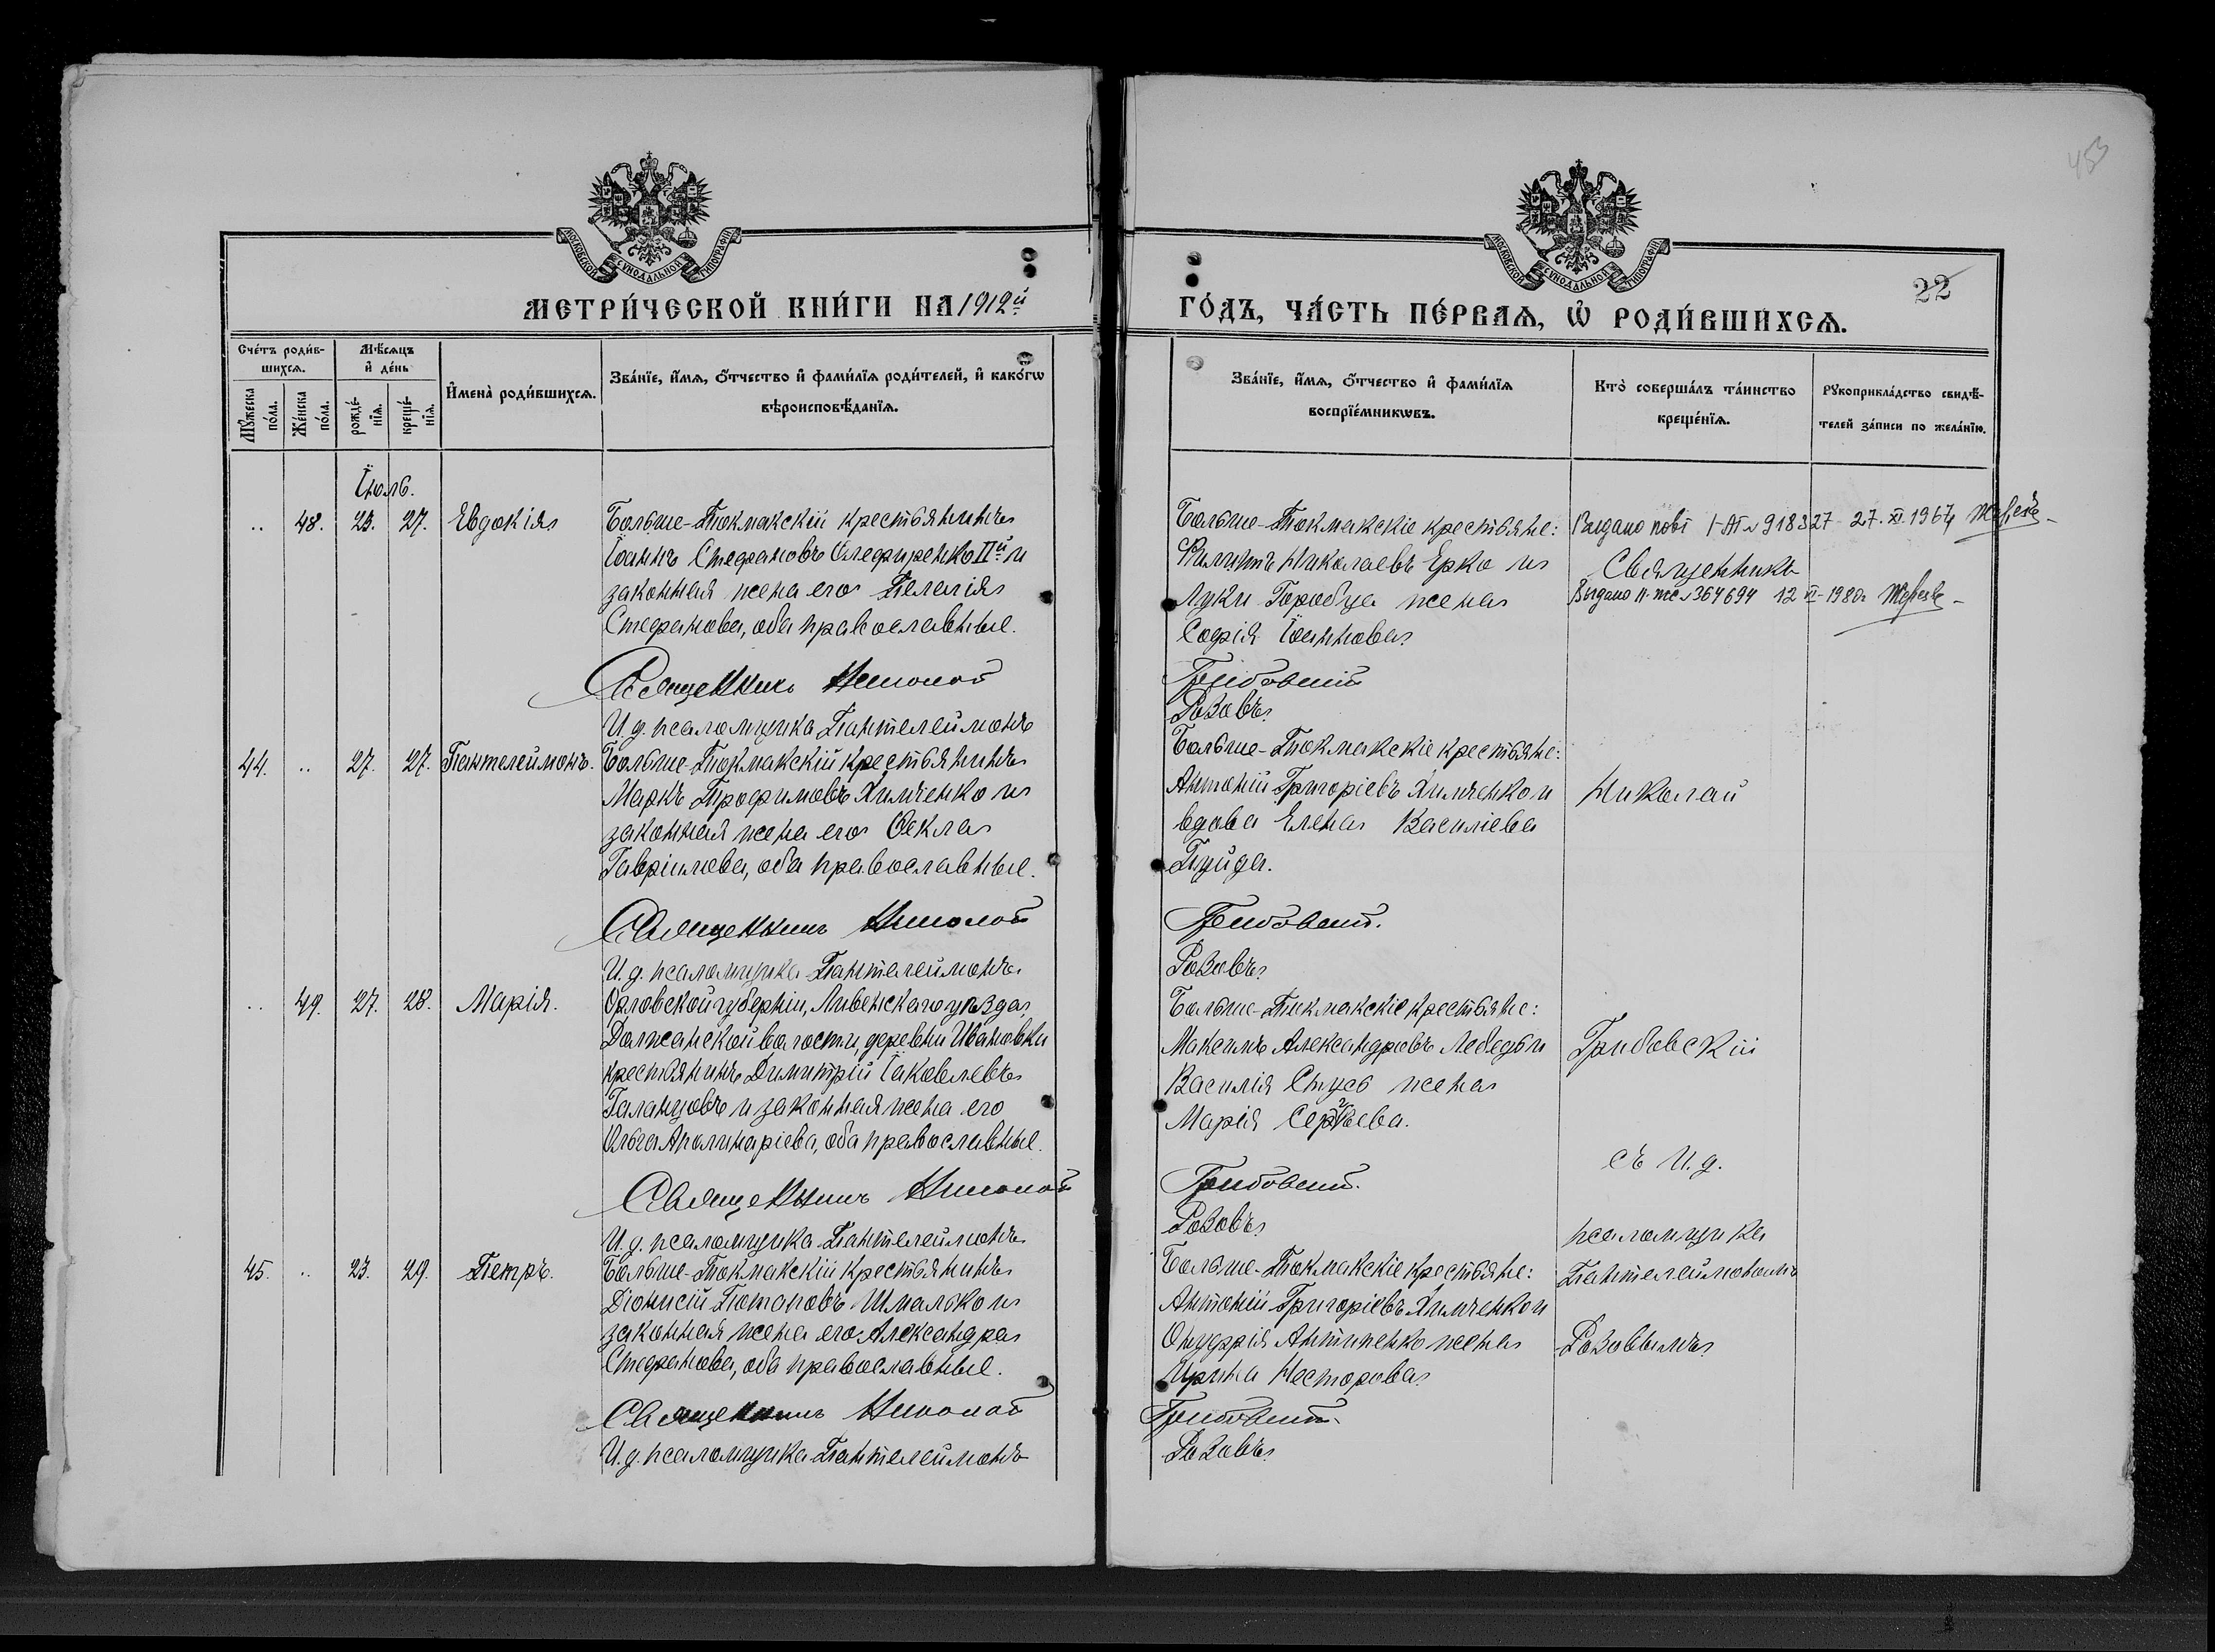 453
МОСКОВСКОЙ СУНОДАЛЬНОЙ ТИПОГРАФІИ
МОСКОВСКОЙ СУНОДАЛЬНОЙ ТИПОГРАФІИ
22
МЕТРИ́ЧЕСКОЙ КНИ́ГИ НА 1912й
ГО́ДЪ, ЧА́СТЬ ПЕ́РВАѦ, Ѡ РОДИ́ВШИХСѦ.
Сче́тъ роди́в-
шихсѧ.
Мѣ́сѧцъ
и҆ де́нь
Мꙋ́жеска по́ла.
Же́нска по́ла.
рожде́-
нїѧ.
креще́-
нїѧ.
И҆мена̀ роди́вшихсѧ.
Зва́нїе, и҆́мѧ, ѻ҆́тчество и҆ фами́лїѧ роди́телей, и҆ како́гѡ
вѣроисповѣ́данїѧ.
Зва́нїе, и҆́мѧ, ѻ҆́тчество и҆ фами́лїѧ
воспрїе́мникѡвъ.
Кто̀ соверша́лъ та́инство
креще́нїѧ.
Рꙋкоприкла́дство свидѣ́-
телей за́писи по жела́нїю.
Іюль.
.. 48. 23. 27. Евдокія
Больше-Токмакскій крестьянинъ
Іоаннъ Стефановъ Олефиренко IIй и
законная жена его Пелагія
Стефанова, оба православные.
Священникъ Николай
И. д. псаломщика Пантелеймонъ
Больше-Токмакскіе крестьяне:
Филиппъ Николаевъ Ерко и
Луки Горобца жена
Софія Іоаннова
Грибовскій
Розовъ
Видано повт I-АП № 918327 27.XI.1967
Священникъ
Выдано 364694 12 VI-1980
44. .. 27. 27. Пантелеймонъ.
Больше-Токмакскій крестьянинъ
Маркъ Трофимовъ Химченко и
законная жена его Ѳекла
Гавріилова, оба православные.
Священникъ Николай
И. д. псаломщика Пантелеймонъ
Больше-Токмакскіе крестьяне:
Антоній Григоріевъ Химченко и
вдова Елена Василіева
Гнуйда.
Грибовскій.
Розовъ
Николай
.. 49. 27. 28. Марія.
Орловской губерніи, Ливенскаго уѣзда
Должанской волости, деревни Ивановки
крестьянинъ Димитрій Іаковлевъ
Галанцовъ и законная жена его
Ольга Аполинаріева, оба православные.
Священникъ Николай
И. д. псаломщика Пантелеймонъ
Больше-Токмакскіе крестьяне:
Максимъ Александровъ Лебедь и
Василія Стусь жена
Марія Сергѣева.
Грибовскій.
Розовъ
Грибовскій
съ И. д.
псаломщика
45. .. 23. 29. Петръ.
Больше-Токмакскій крестьянинъ
Діонисій Потаповъ Шмалько и
законная жена его Александра
Стефанова, оба православные.
Священникъ Николай
И. д. псаломщика Пантелеймонъ
Больше-Токмакскіе крестьяне:
Антоній Григоріевъ Химченко и
Онуфрія Антипенко жена
Ирина Несторова
Грибовскій.
Розовъ
Пантелеймономъ
Розовымъ